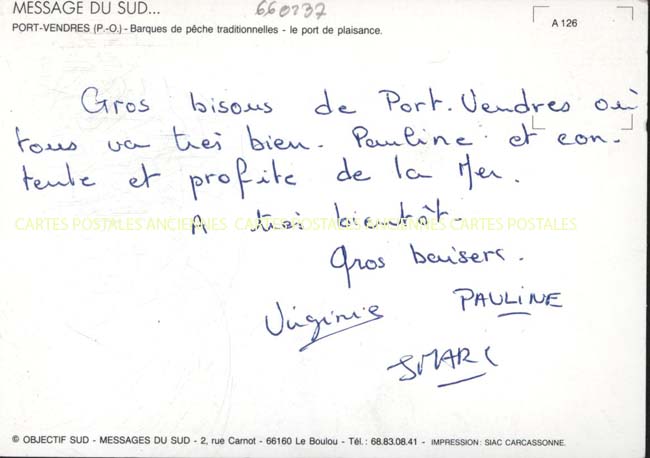 MESSAGE DU SUD...
660237
PORT-VENDRES (P.-O.) - Barques de pêche traditionnelles - le port de plaisance.
A 126
Gros bisous de Port-Vendres où
tous va très bien. Pauline et con-
tente et profite de la Mer.
A très bientôt.
CARTES POSTALES ANCIENNES CARTES POSTALES ANCIENNES CARTES POSTALES
Gros baisers.
Virginie PAULINE
JMARC
© OBJECTIF SUD - MESSAGES DU SUD - 2, rue Carnot - 66160 Le Boulou - Tél. : 68.83.08.41 - IMPRESSION: SIAC CARCASSONNE.